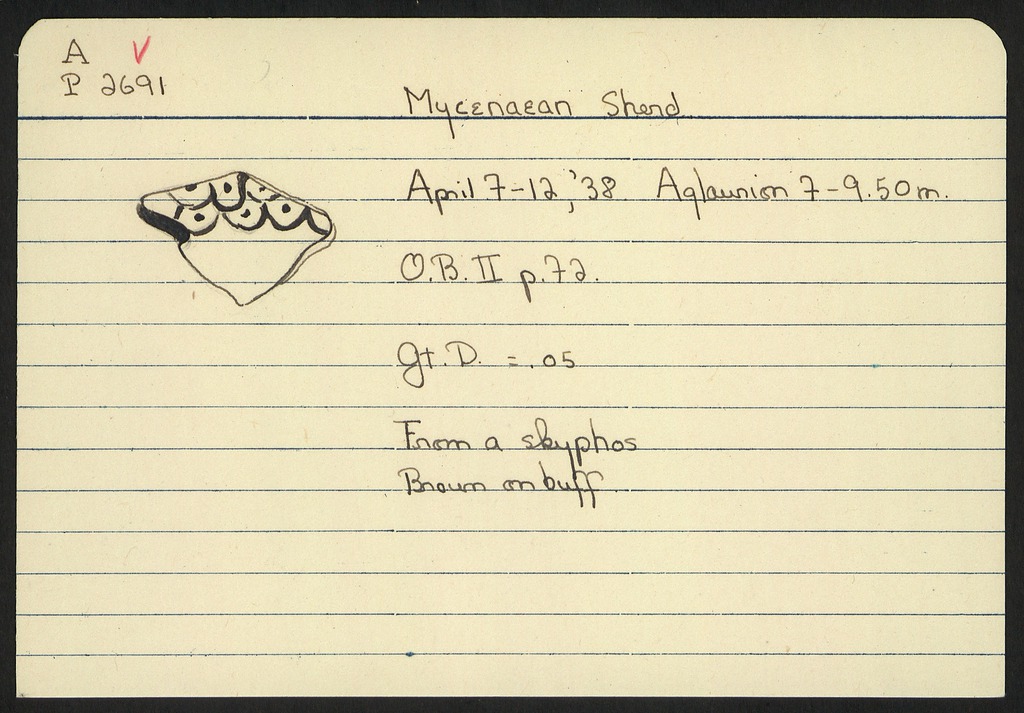 A V
P 2691
Mycenaean Sherd
April 7-12, '38. Aglaurion 7-9.50m.
O.B. II p.72.
Gt. D. = .05
From a skyphos
Brown on buff.